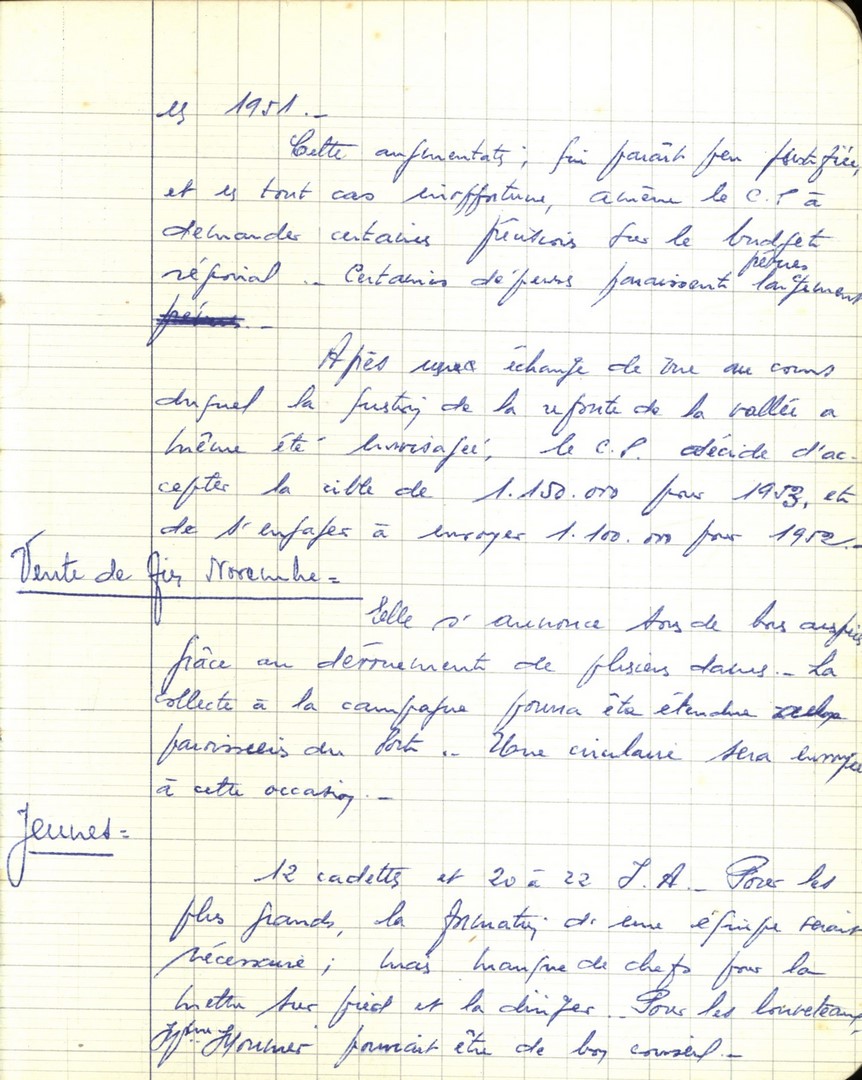 en 1951.-
Cette augmentation, qui paraît peu justifiée,
et en tout cas inopportune, amène le C.P à
demander certaines précisions sur le budget
régional .- Certaines dépenses paraissent largement
prévues
.-
Après échange de vue au cours
duquel la question de la refonte de la vallée a
même été envisagée, le C.P. décide d'ac-
cepter la cible de 1.150.000 pour 1953, et
de s'engager à envoyer 1.100.000 pour 1952.-
Vente de fin Novembre =
Elle s'annonce sous de bons auspices
grâce au dévouements de plusieurs dames.- La
collecte à la campagne pourra être étendue
paroissiens du .- Une circulaire sera envoyée
à cette occasion.-
Jeunes =
12 cadettes et 20 à 22 J.A.- Pour les
plus grands, la formation d'une équipe serait
nécessaire ; mais manque de chefs pour la
mettre sur pied et la diriger.- Pour les louveteaux,
pourrait être de bon conseil.-